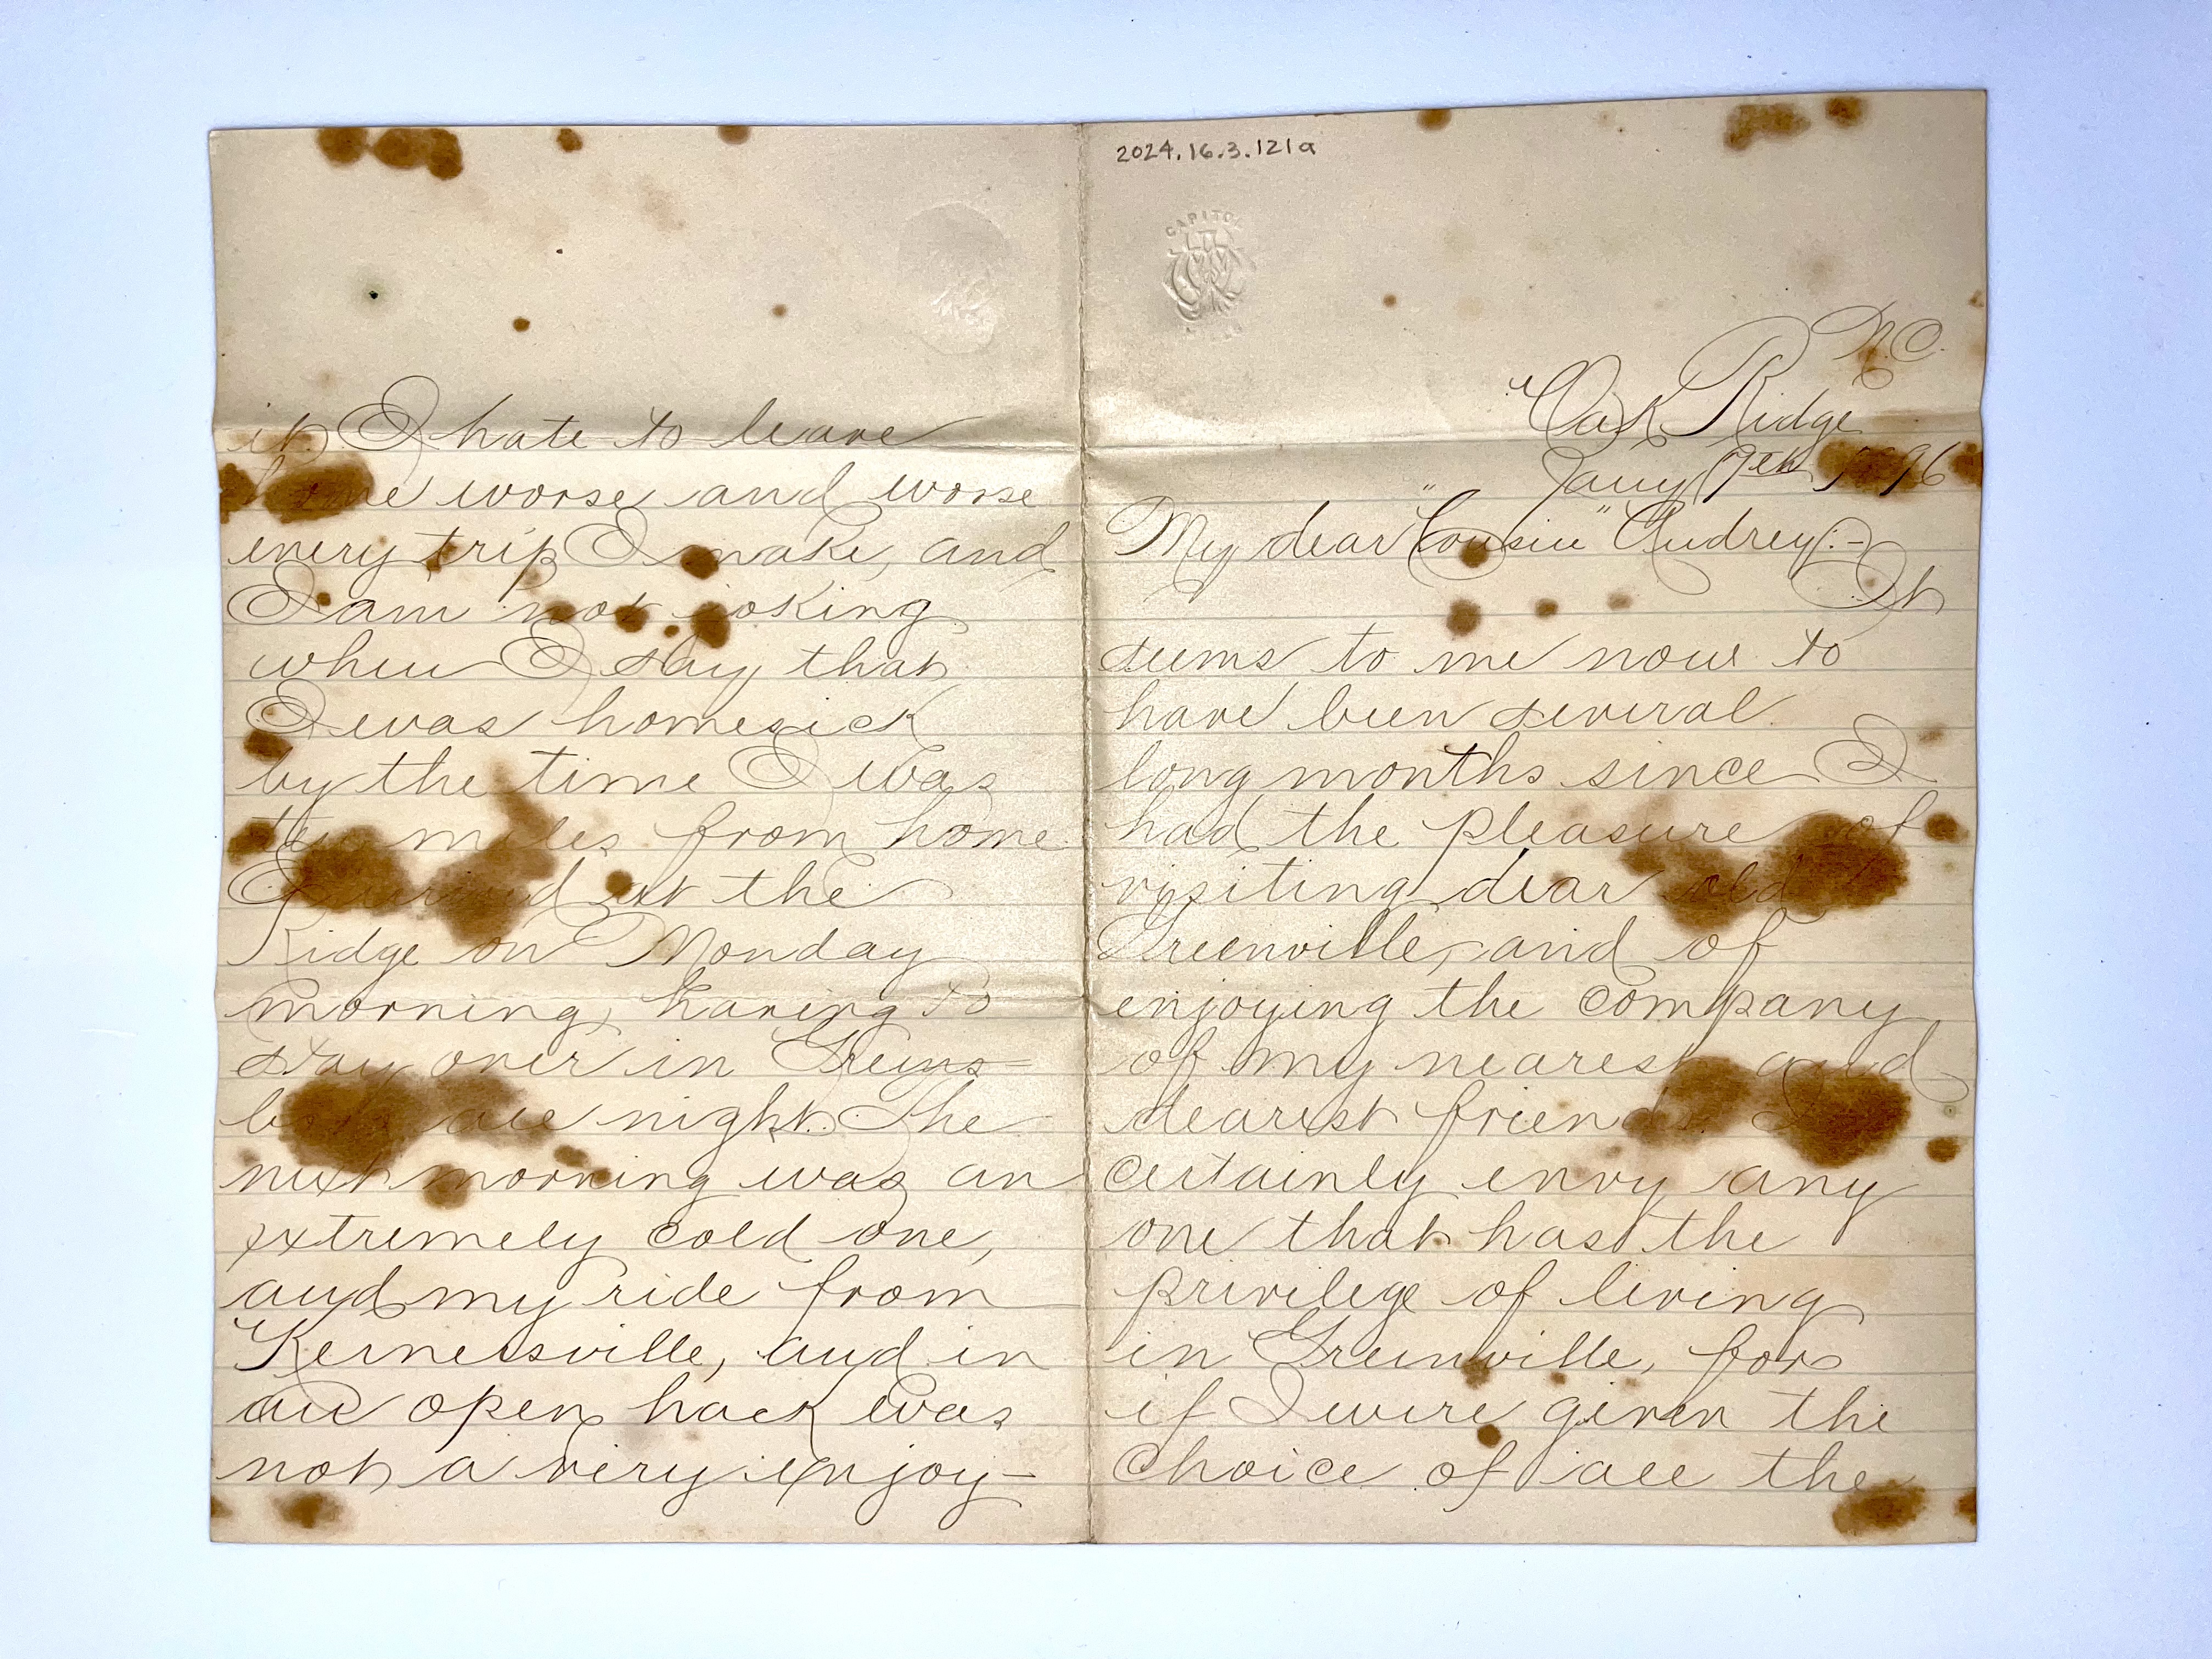 2024.16.3.121a
CAPITOL
N.C.
Oak Ridge
Jany 7th 1896
My dear "Cousin" Audrey:-
It
seems to me now to
have been several
long months since I
had the pleasure of
visiting dear old
Greenville, and of
enjoying the company
of my nearest and
dearest friends. I
certainly envy any
one that has the
privilege of living
in Greenville, for
if I were given the
choice of all the
it. I hate to leave
home worse and worse
every trip I make, and
I am not joking
when I say that
I was homesick
by the time I was
ten miles from home.
I arrived at the
Ridge on Monday
morning, having to
stay over in Greens-
boro all night. The
next morning was an
extremely cold one,
and my ride from
Kernersville, and in
an open hack was
not a very enjoy-